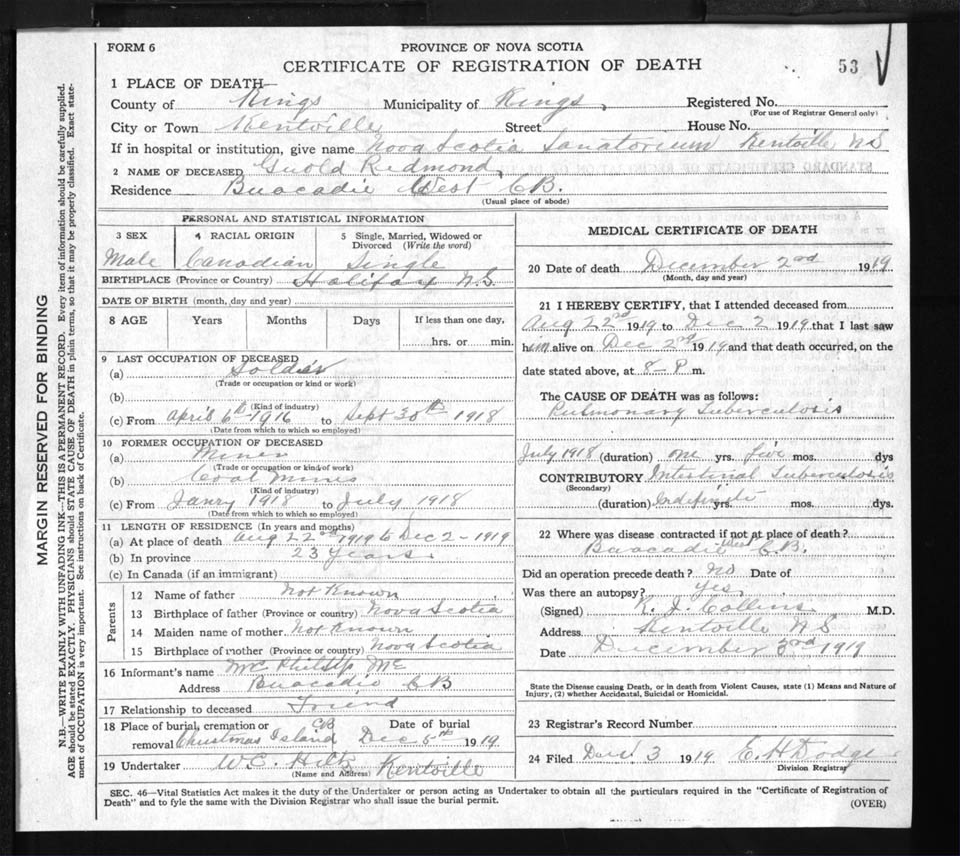 FORM 6
PROVINCE OF NOVA SCOTIA
CERTIFICATE OF REGISTRATION OF DEATH
53
1 PLACE OF DEATH—
County of Kings Municipality of Kings, Registered No.
(For use of Registrar General only)
City or Town Kentville Street House No.
If in hospital or institution, give name Nova Scotia Sanatorium Kentville NS
2 NAME OF DECEASED Redmond
Residence West CB.
(Usual place of abode)
PERSONAL AND STATISTICAL INFORMATION
3 SEX 4 RACIAL ORIGIN 5 Single, Married, Widowed or Divorced (Write the word)
Male Canadian Single
BIRTHPLACE (Province or Country) Halifax N.S.
DATE OF BIRTH (month, day and year)
8 AGE Years Months Days If less than one day,
hrs. or min.
9 LAST OCCUPATION OF DECEASED
(a) Soldier
(Trade or occupation or kind or work)
(b)
(Kind of industry)
(c) From April 6th 1916 to Sept 30th 1918
(Date from which to which so employed)
10 FORMER OCCUPATION OF DECEASED
(a) Miner
(Trade or occupation or kind of work)
(b) Coal Mines
(Kind of industry)
(c) From Janry 1918 to July 1918
(Date from which to which so employed)
11 LENGTH OF RESIDENCE (In years and months)
(a) At place of death Aug 22nd 1919 to Dec 2-1919
(b) In province 23 years
(c) In Canada (if an immigrant)
Parents
12 Name of father Not Known
13 Birthplace of father (Province or country) Nova Scotia
14 Maiden name of mother Not Known
15 Birthplace of mother (Province or country) Nova Scotia
16 Informant's name
Address CB
17 Relationship to deceased Friend
18 Place of burial, cremation or removal Christmas Island CB Date of burial Dec 5th 1919
19 Undertaker W.C. Kentville
(Name and Address)
MEDICAL CERTIFICATE OF DEATH
20 Date of death December 2nd 1919
(Month, day and year)
21 I HEREBY CERTIFY, that I attended deceased from
Aug 22nd 1919 to Dec 2 1919 that I last saw
him alive on Dec 2nd 1919 and that death occurred, on the
date stated above, at 8-P m.
The CAUSE OF DEATH was as follows:
Pulmonary Tuberculosis
July 1918 (duration) one yrs. five mos. dys
CONTRIBUTORY Intestinal Tuberculosis
(Secondary)
(duration) Indefinite yrs. mos. dys
22 Where was disease contracted if not at place of death?
West CB.
Did an operation precede death? No Date of
Was there an autopsy? Yes
(Signed) Collins M.D.
Address Kentville NS
Date December 3rd 1919
State the Disease causing Death, or in death from Violent Causes, state (1) Means and Nature of
Injury, (2) whether Accidental, Suicidal or Homicidal.
23 Registrar's Record Number
24 Filed 3 1919 E. H Dodge
Division Registrar
SEC. 46—Vital Statistics Act makes it the duty of the Undertaker or person acting as Undertaker to obtain all the particulars required in the "Certificate of Registration of
Death" and to fyle the same with the Division Registrar who shall issue the burial permit.
(OVER)
MARGIN RESERVED FOR BINDING
N.B.—WRITE PLAINLY WITH UNFADING INK—THIS IS A PERMANENT RECORD. Every item of information should be carefully supplied.
AGE should be stated EXACTLY. PHYSICIANS should STATE CAUSE OF DEATH in plain terms, so that it may be properly classified. Exact state-
ment of OCCUPATION is very important. See instructions on back of Certificate.